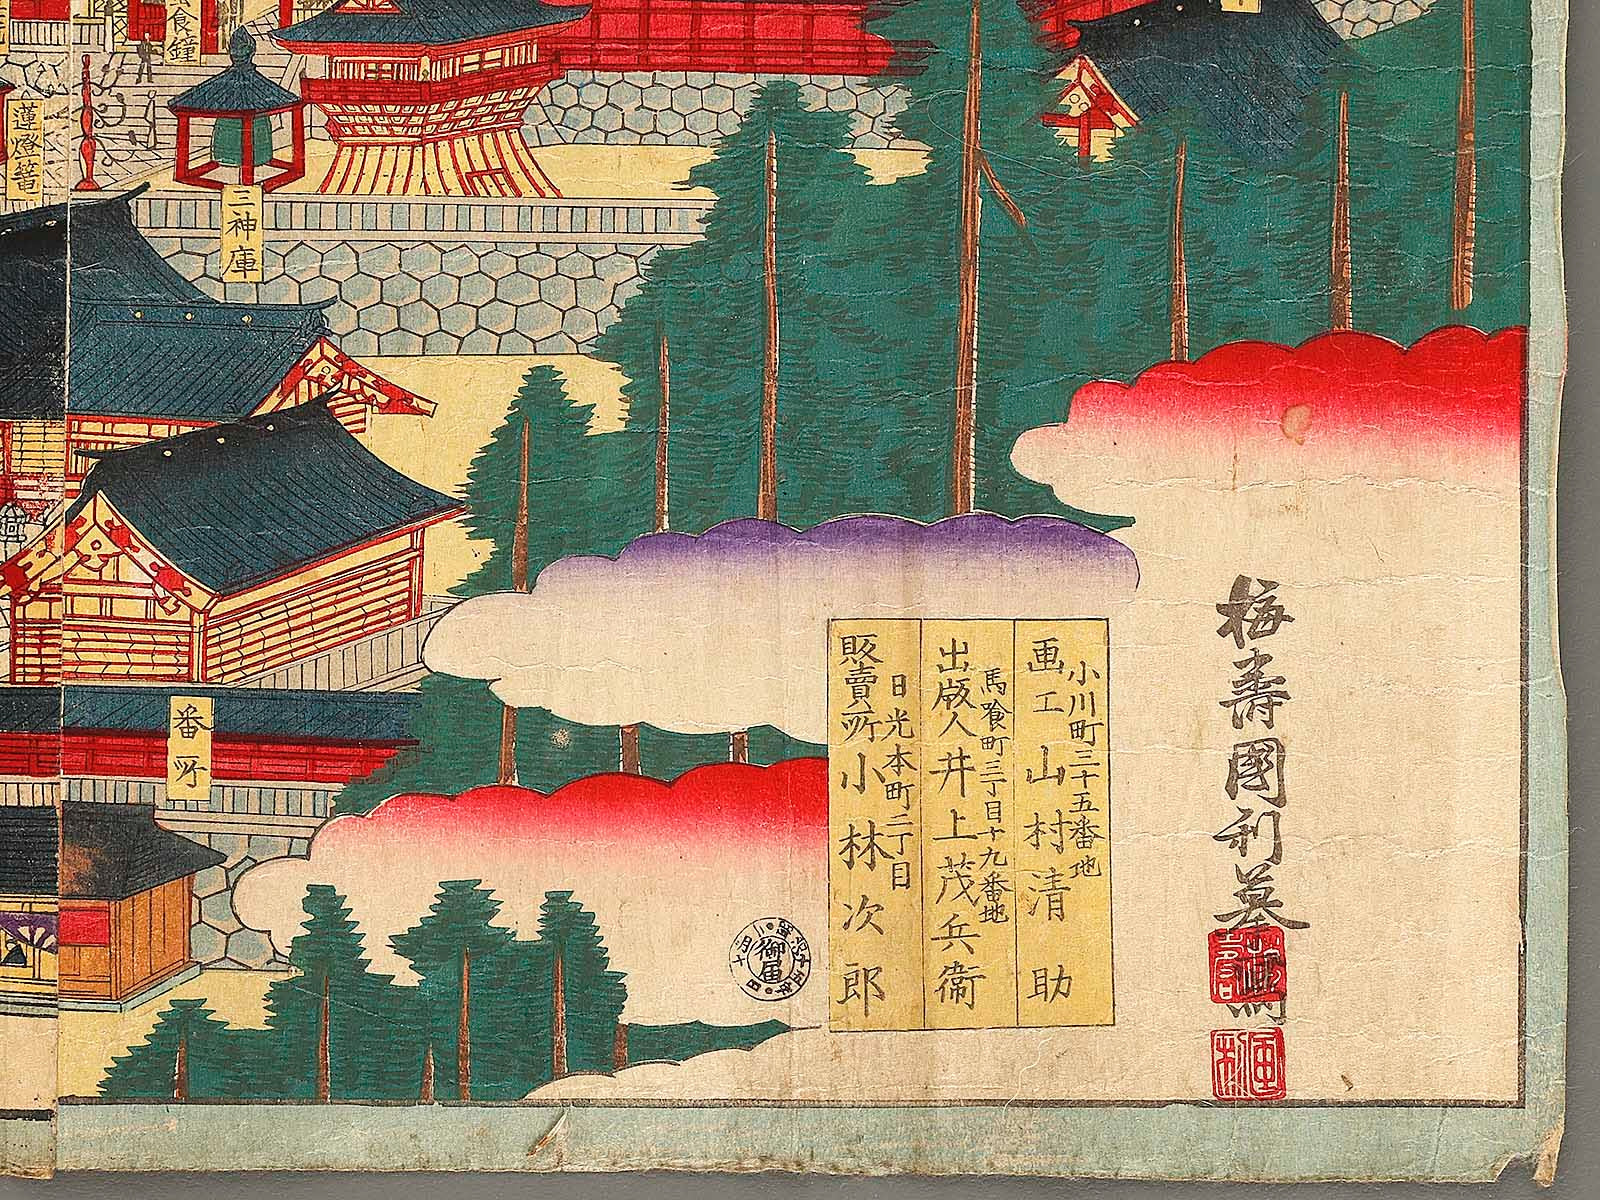 梅寿國利慕寫
小川町三十五番地
画工 山村清助
馬喰町三丁目十九番地
出版人 井上茂兵衛
日光本町二丁目
販賣所 小林次郎
御届
食鐘
蓮燈篭
三神庫
番所